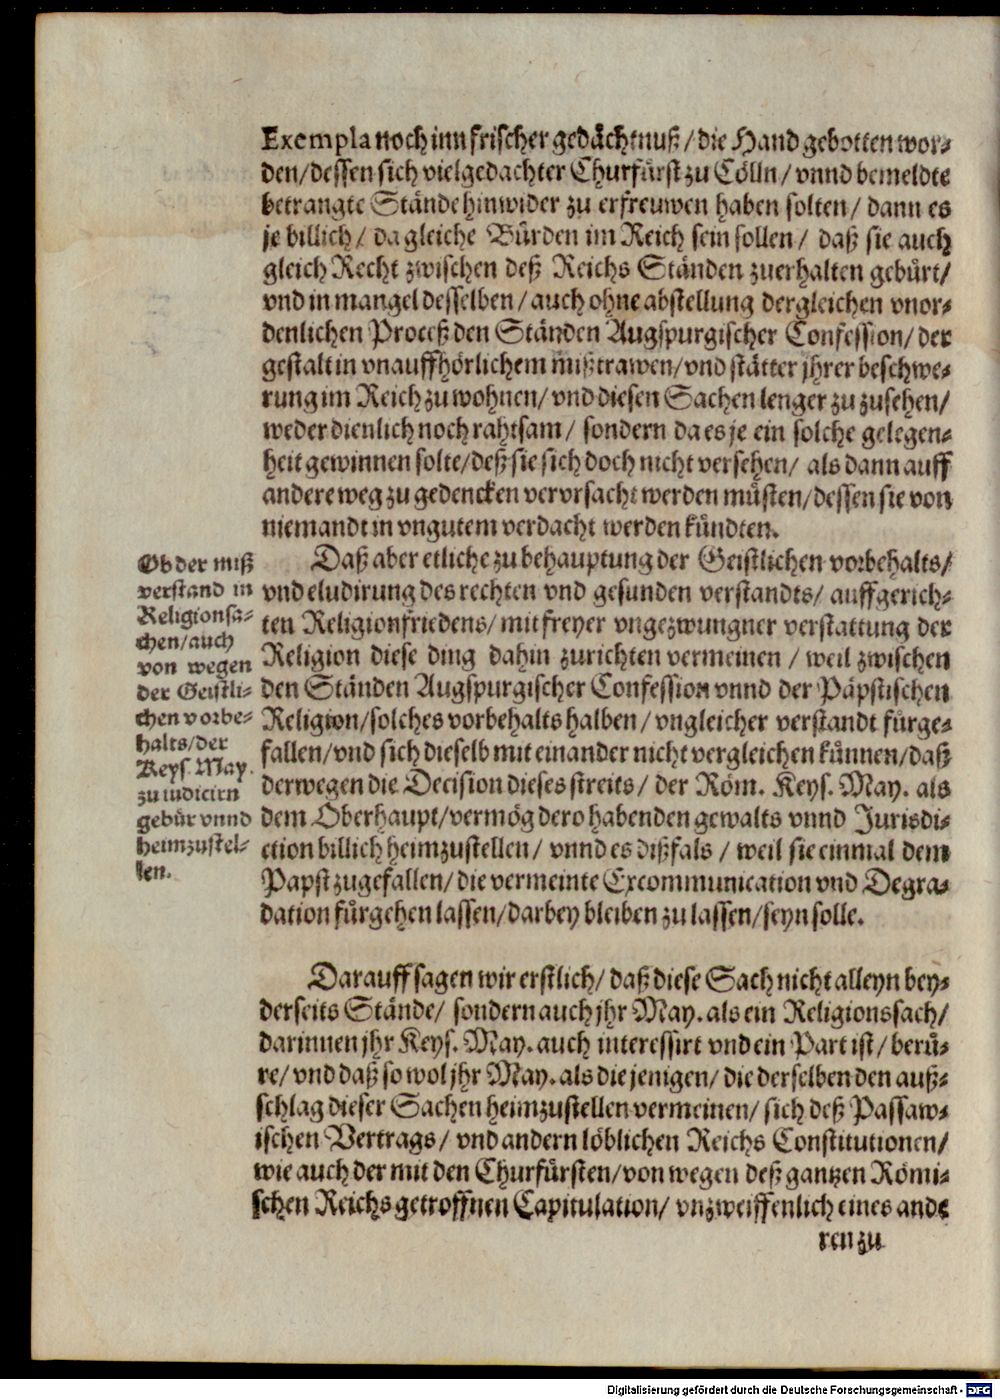 Exempla noch inn frischer gedächtnuß / die Hand gebotten wor-
den / dessen sich vielgedachter Churfürst zu Cölln / vnnd bemeldte
betrangte Stände hinwider zu erfreuwen haben solten / dann es
je billich / da gleiche Bürden im Reich sein sollen / daß sie auch
gleich Recht zwischen deß Reichs Ständen zuerhalten gebürt /
vnd in mangel desselben / auch ohne abstellung dergleichen vnor-
denlichen Proceß den Ständen Augspurgischer Confession / der
gestalt in vnauffhörlichem mißtrawen / vnd stätter jhrer beschwe-
rung im Reich zu wohnen / vnd diesen Sachen lenger zu zusehen /
weder dienlich noch rahtsam / sondern da es je ein solche gelegen-
heit gewinnen solte / deß sie sich doch nicht versehen / als dann auff
andere weg zu gedencken vervrsacht werden müsten / dessen sie von
niemandt in vngutem verdacht werden kündten.
Daß aber etliche zu behauptung der Geistlichen vorbehalts /
vnd eludirung des rechten vnd gesunden verstandts / auffgerich-
ten Religionfriedens / mit freyer vngezwungner verstattung der
Religion diese ding dahin zurichten vermeinen / weil zwischen
den Ständen Augspurgischer Confession vnnd der Päpstischen
Religion / solches vorbehalts halben / vngleicher verstandt fürge-
fallen / vnd sich dieselb mit einander nicht vergleichen künnen / daß
derwegen die Decision dieses streits / der Röm. Keys. May. als
dem Oberhaupt / vermög dero habenden gewalts vnnd Jurisdi-
ction billich heimzustellen / vnnd es dißfals / weil sie einmal dem
Papst zugefallen / die vermeinte Excommunication vnd Degra-
dation fürgehen lassen / darbey bleiben zu lassen / seyn solle.
Ob der miß
verstand in
Religionsa-
chen / auch
von wegen
der Geistli-
chen vorbe-
halts / der
Keys. May.
zu iudicirn
gebür vnnd
heimzustel-
len.
Darauff sagen wir erstlich / daß diese Sach nicht alleyn bey-
derseits Stände / sondern auch jhr May. als ein Religionssach /
darinnen jhr Keys. May. auch interessirt vnd ein Part ist / berü-
re / vnd daß so wol jhr May. als die jenigen / die derselben den auß-
schlag dieser Sachen heimzustellen vermeinen / sich deß Passaw-
ischen Vertrags / vnd andern löblichen Reichs Constitutionen /
wie auch der mit den Churfürsten / von wegen deß gantzen Römi-
schen Reichs getroffnen Capitulation / vnzweiffenlich eines ande
ren zu
Digitalisierung gefördert durch die Deutsche Forschungsgemeinschaft - DFG